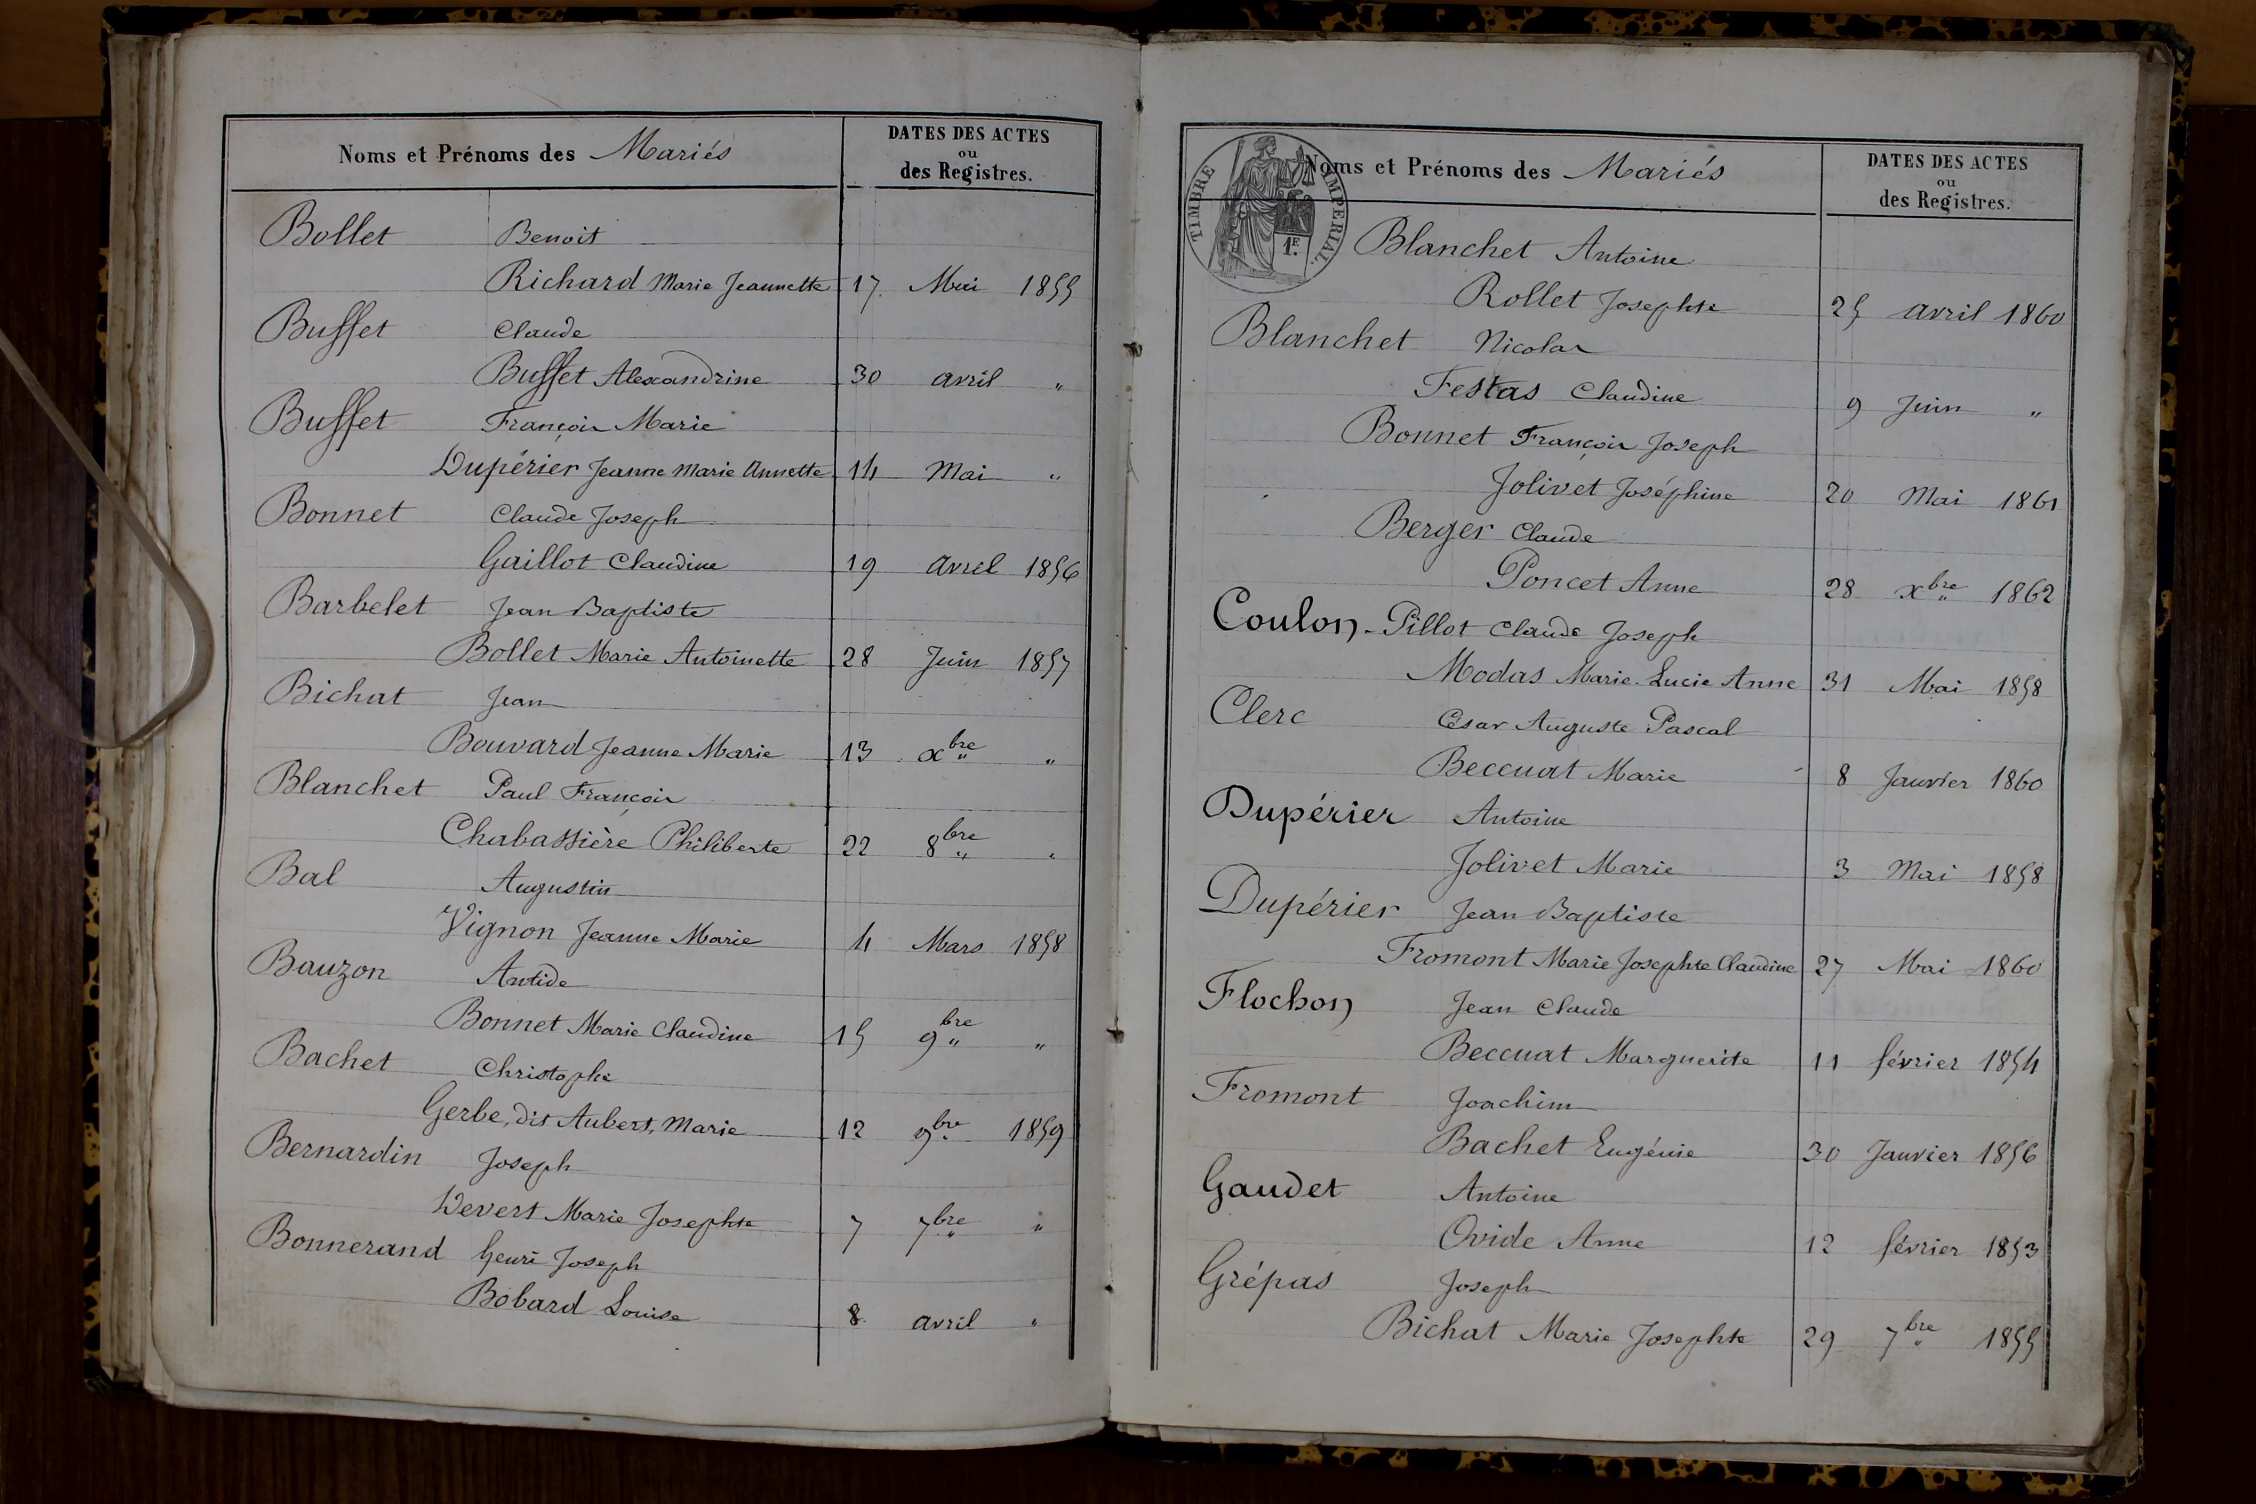 Noms et Prénoms des Mariés
DATES DES ACTES
ou
des Registres.
Bollet Benoit
Richard Marie Jeannette 17 Mai 1855
Buffet Claude
Buffet Alexandrine 30 avril "
Buffet François Marie
Dupérier Jeanne Marie Annette 14 Mai "
Bonnet Claude Joseph
Gaillot Claudine 19 avril 1856
Barbelet Jean Baptiste
Bollet Marie Antoinette 28 Juin 1857
Bichat Jean
Bouvard Jeanne Marie 13 xbre "
Blanchet Paul François
Chabassière Philiberte 22 8bre "
Bal Augustin
Vignon Jeanne Marie 4 Mars 1858
Bauzon Antide
Bonnet Marie Claudine 15 9bre "
Bachet Christophe
Gerbe, dit Aubert, Marie 12 9bre 1859
Bernardin Joseph
Devert Marie Josephte 7 7bre "
Bonnerand henri Joseph
Bobard Louise 8 avril "
TIMBRE IMPERIAL.
1E.
Noms et Prénoms des Mariés
DATES DES ACTES
ou
des Registres.
Blanchet Antoine
Rollet Josephte 25 avril 1860
Blanchet Nicolas
Festas Claudine 9 Juin "
Bonnet François Joseph
Jolivet Joséphine 20 Mai 1861
Berger Claude
Poncet Anne 28 xbre 1862
Coulon-Pillot Claude Joseph
Modas Marie-Lucie Anne 31 Mai 1858
Clerc César Auguste Pascal
Beccuat Marie 8 Janvier 1860
Dupérier Antoine
Jolivet Marie 3 Mai 1858
Dupérier Jean Baptiste
Fromont Marie Josephte Claudine 27 Mai 1860
Flochon Jean Claude
Beccuat Marguerite 11 février 1854
Fromont Joachim
Bachet Eugénie 30 Janvier 1856
Gaudet Antoine
Ovide Anne 12 février 1853
Grépas Joseph
Bichat Marie Josephte 29 7bre 1855